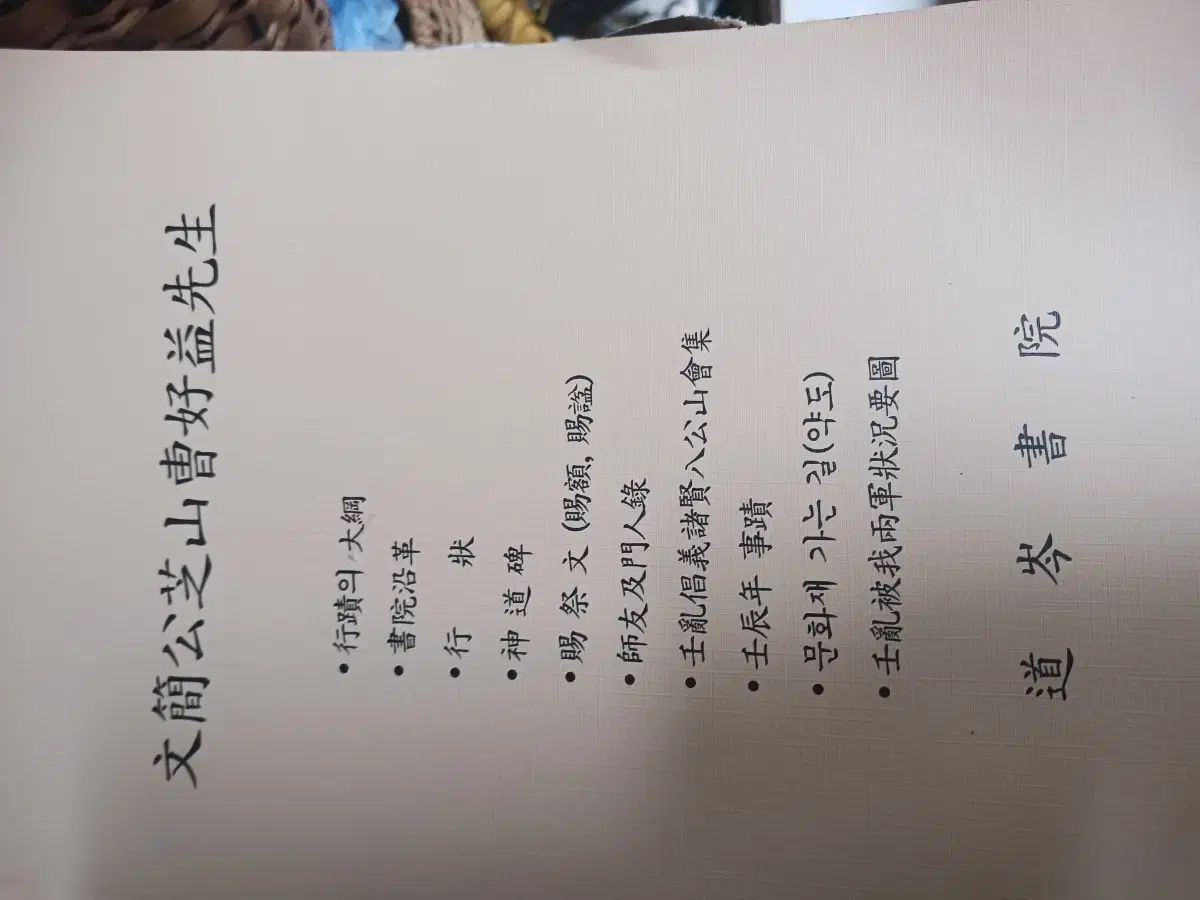 文簡公芝山曹好益先生
• 行蹟의 大綱
• 書院沿革
• 行 狀
• 神道碑
• 賜祭文 (賜額, 賜諡)
• 師友及門人錄
• 壬亂倡義諸賢八公山會集
• 壬辰年 事蹟
• 문화재 가는 길(약도)
• 壬亂被我兩軍狀況要圖
道岑書院